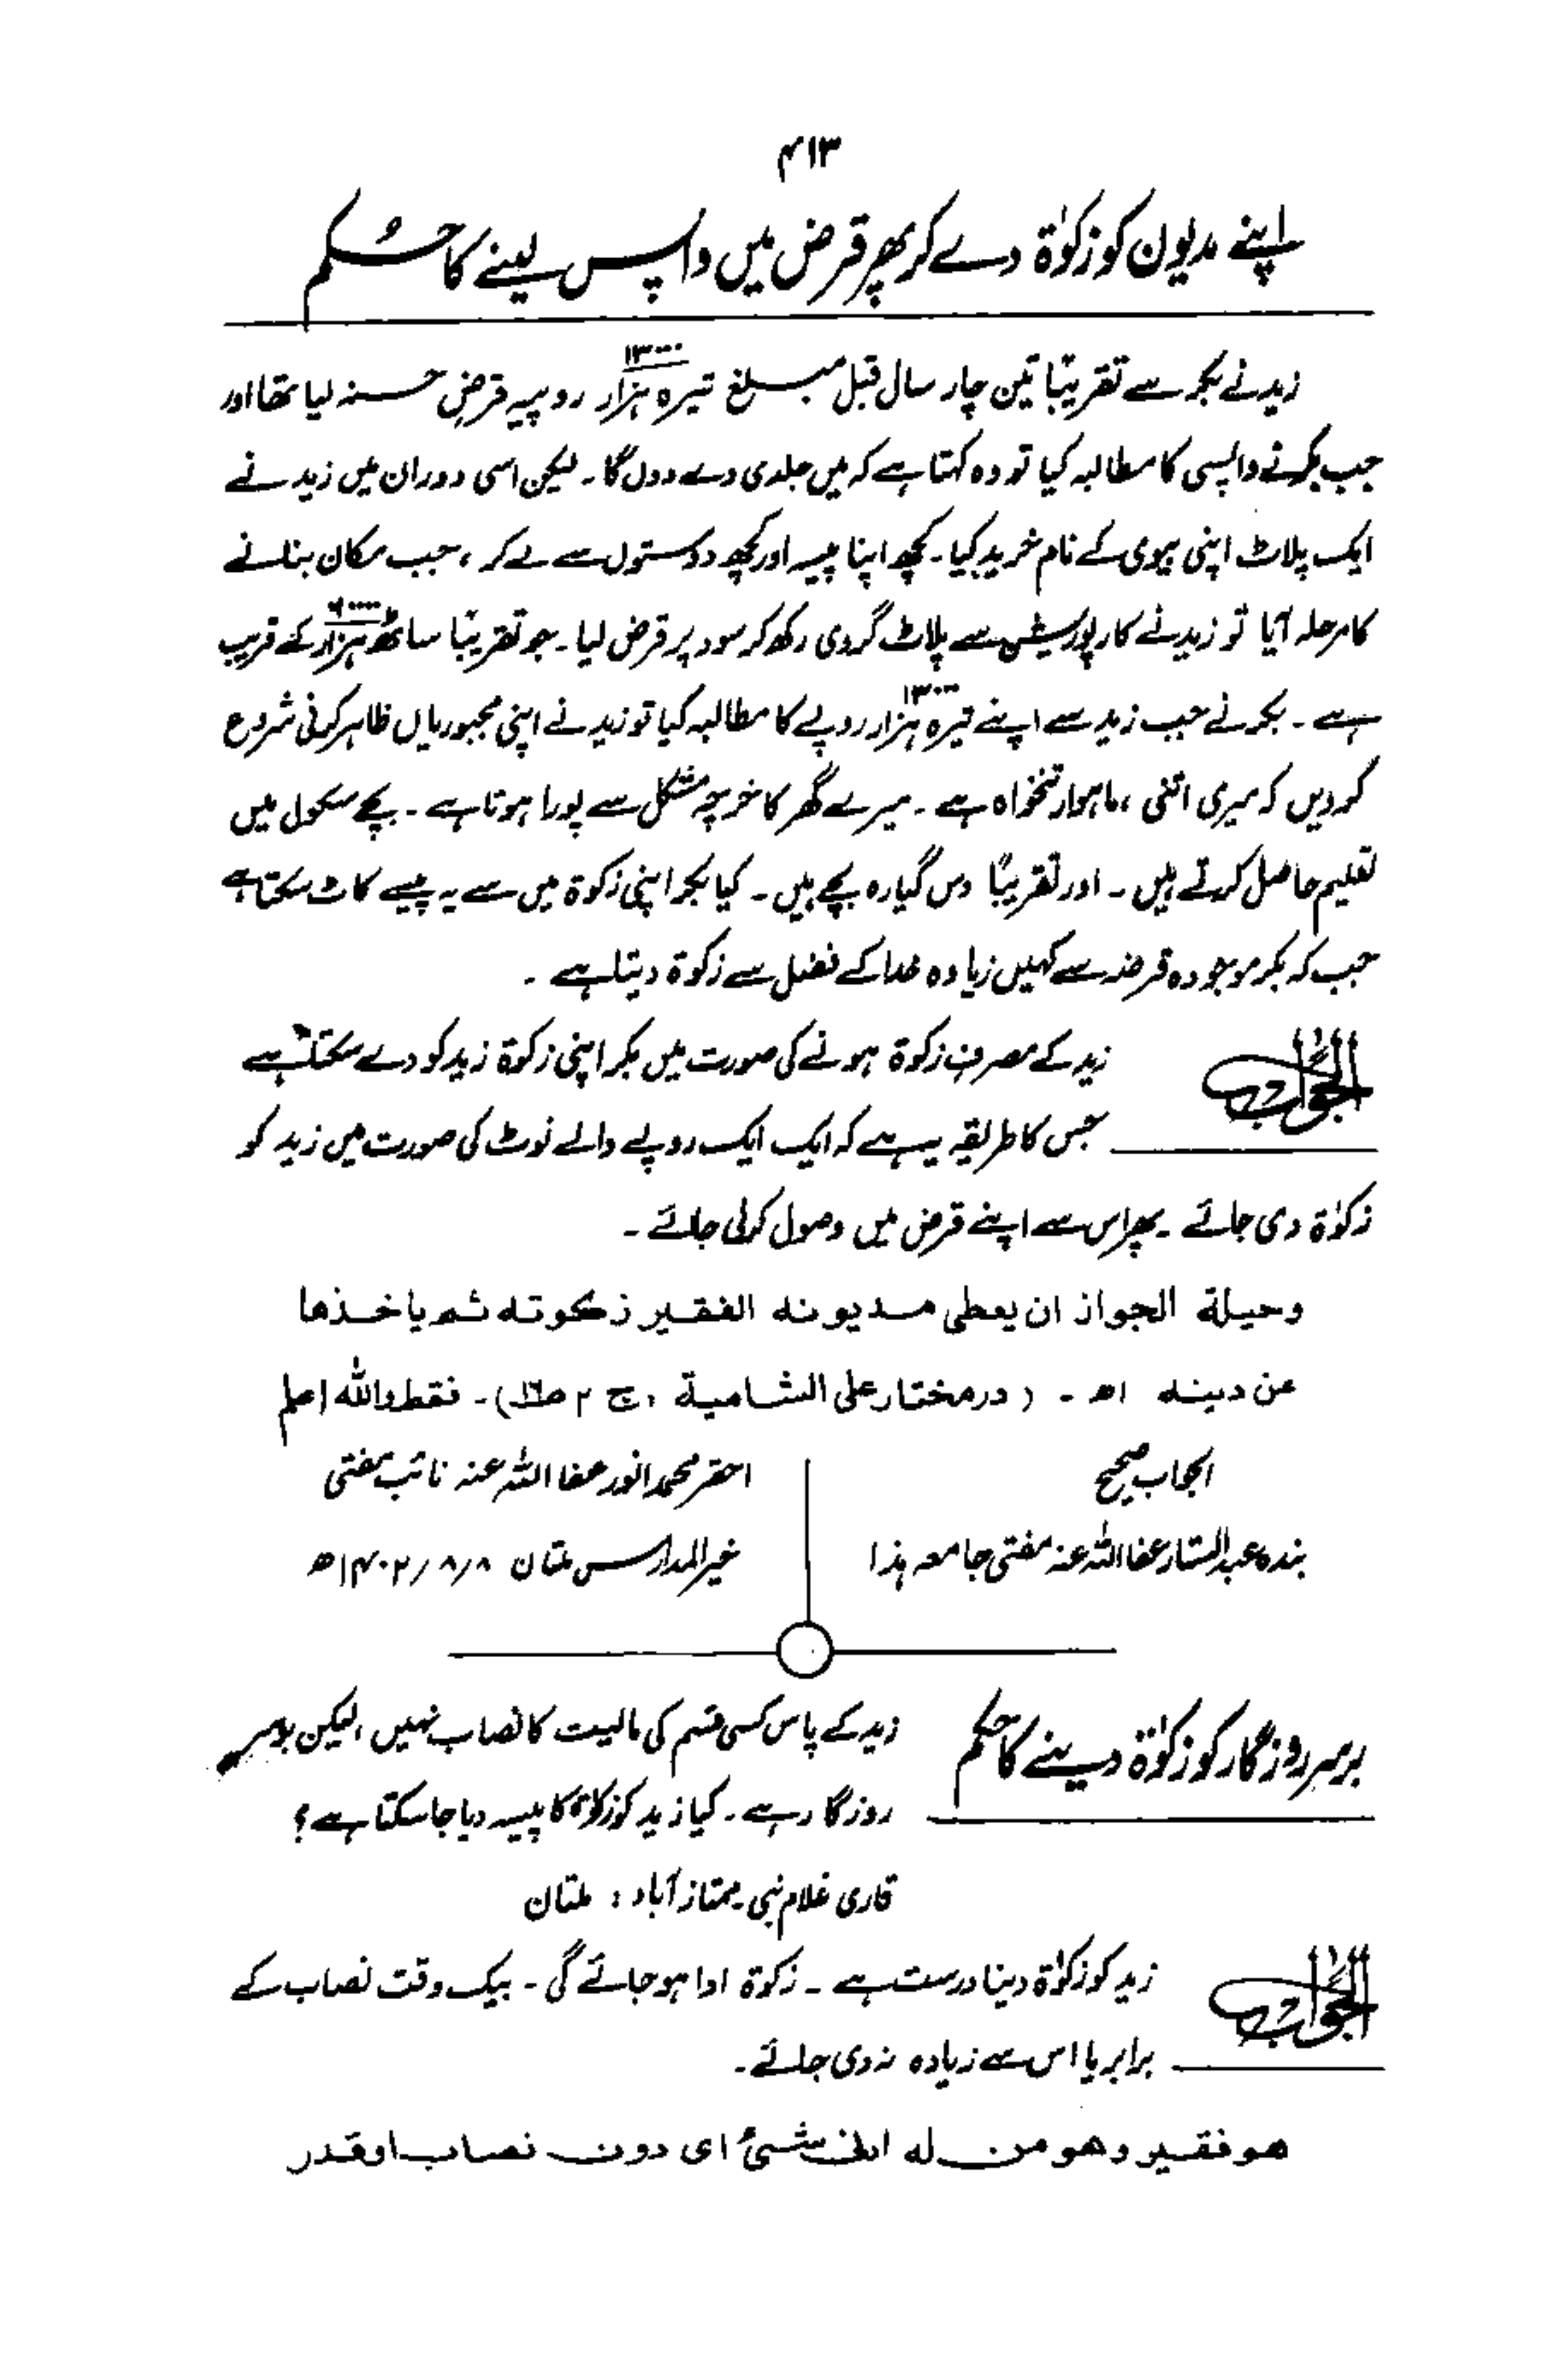 ۴۱۳
اپنے مدیون کو زکوٰۃ دے کر پھر قرض میں واپس لینے کا حکم
زید نے بکر سے تقریباً تین چار سال قبل مبلغ تیرہ ہزار ۱۳۰۰۰ روپیہ قرضِ حسنہ لیا تھا اور
جب بکر نے واپسی کا مطالبہ کیا تو وہ کہتا ہے کہ میں جلدی دے دوں گا۔ لیکن اسی دوران میں زید نے
ایک پلاٹ اپنی بیوی کے نام خرید کیا۔ کچھ اپنا پیسہ اور کچھ دوستوں سے لے کر ، جب مکان بنانے
کا مرحلہ آیا تو زید نے کارپوریشن سے پلاٹ گروی رکھ کر سود پر قرض لیا۔ جو تقریباً ساٹھ ہزار ۶۰۰۰۰ کے قریب
ہے ۔ بکر نے جب زید سے اپنے تیرہ ہزار ۱۳۰۰۰ روپے کا مطالبہ کیا تو زید نے اپنی مجبوریاں ظاہر کرنی شروع
کر دیں کہ میری اتنی ، ماہوار تنخواہ ہے ۔ میرے گھر کا خرچہ مشکل سے پورا ہوتا ہے ۔ بچے سکول میں
تعلیم حاصل کرتے ہیں ۔ اور تقریباً دس گیارہ بچے ہیں ۔ کیا بکر اپنی زکوۃ میں سے یہ پیسے کاٹ سکتا ہے
جب کہ بکر موجودہ قرضہ سے کہیں زیادہ خدا کے فضل سے زکوۃ دیتا ہے ۔
الجواب زید کے مصرف زکوۃ ہونے کی صورت میں بکر اپنی زکوۃ زید کو دے سکتا ہے
جس کا طریقہ یہ ہے کہ ایک ایک روپے والے نوٹ کی صورت میں زید کو
زکوٰۃ دی جائے ۔ پھر اس سے اپنے قرض میں وصول کر لی جائے ۔
وحيلة الجواز ان يعطى مديونه الفقير زكوته ثم ياخذها
عن دينه اھ ۔ ( درمختار على الشامية ، ج ۲ )۔ فقط واللہ اعلم
الجواب صحیح
بندہ عبدالستار عفا اللہ عنہ مفتی جامعہ ہذا
احقر محمد انور عفا اللہ عنہ نائب مفتی
خیر المدارس ملتان ۸/۸/۱۴۰۲ھ
برسر روزگار کو زکوٰۃ دینے کا حکم
زید کے پاس کسی قسم کی مالیت کا نصاب نہیں ، لیکن برسر
روزگار ہے ۔ کیا زید کو زکوٰۃ کا پیسہ دیا جا سکتا ہے ؟
قاری غلام نبی ۔ ممتاز آباد ، ملتان
الجواب زید کو زکوٰۃ دینا درست ہے ۔ زکوۃ ادا ہو جائے گی ۔ بیک وقت نصاب کے
برابر یا اس سے زیادہ نہ دی جائے ۔
هو فقير وهو من له ادنى شيئ اى دون نصاب او قدر